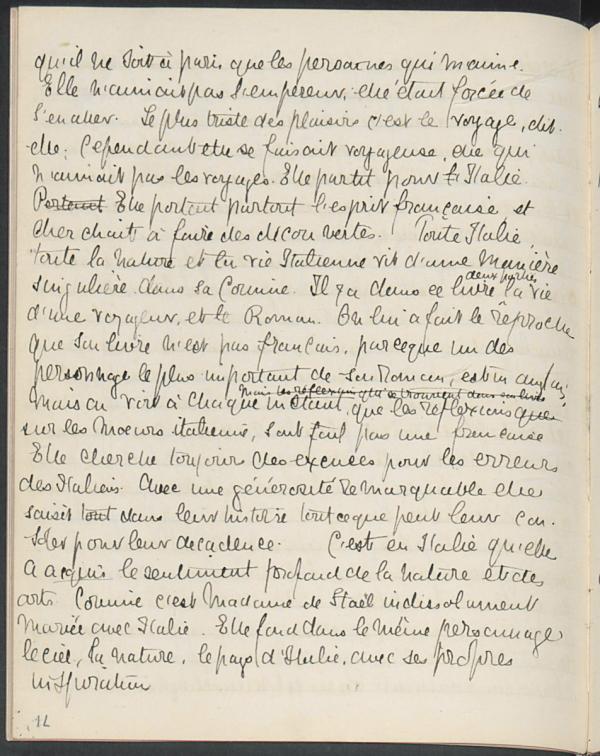 qu'il ne soit à paris que les personnes qui m'aime.
Elle n'aimait pas l'empereur, elle était forcée de
s'en aller. Le plus triste des plaisirs c'est le voyage, dit-
elle; Cependant elle se faisait voyageuse, elle qui
n'aimait pas les voyages. Elle partit pour l'Italie.
Portant Elle portant partout l'esprit française, et
cherchait à faire des découvertes. Toute Italie,
toute la nature et la vie Italienne vit d'une manière
singulière dans sa Corinne. Il y a dans ce livre deux parties la vie
d'une voyageur, et le Roman. On lui a fait le réproche
que son livre n'est pas français, parceque un des
personnage le plus important de son Roman, est un anglais,
mais les réflexions qui se trouvent dans son livre
Mais on voit à chaque instant, que les réflexions que
sur les moeurs italiens, sont fait pas une française
Elle cherche toujours des excuses pour les erreurs
des Italiens. Avec une générosité remarquable elle
saisit tout dans leur histoire tout ce que peut leur con-
soler pour leur decadence. C'est en Italie qu'elle
a acquis le sentiment profond de la nature et des
arts. Corinne c'est Madame de Staël indissolument
mariée avec Italie. Elle fond dans le même personnage
le ciel, la nature, le pays d'Italie, avec ses propres
inspiration
12